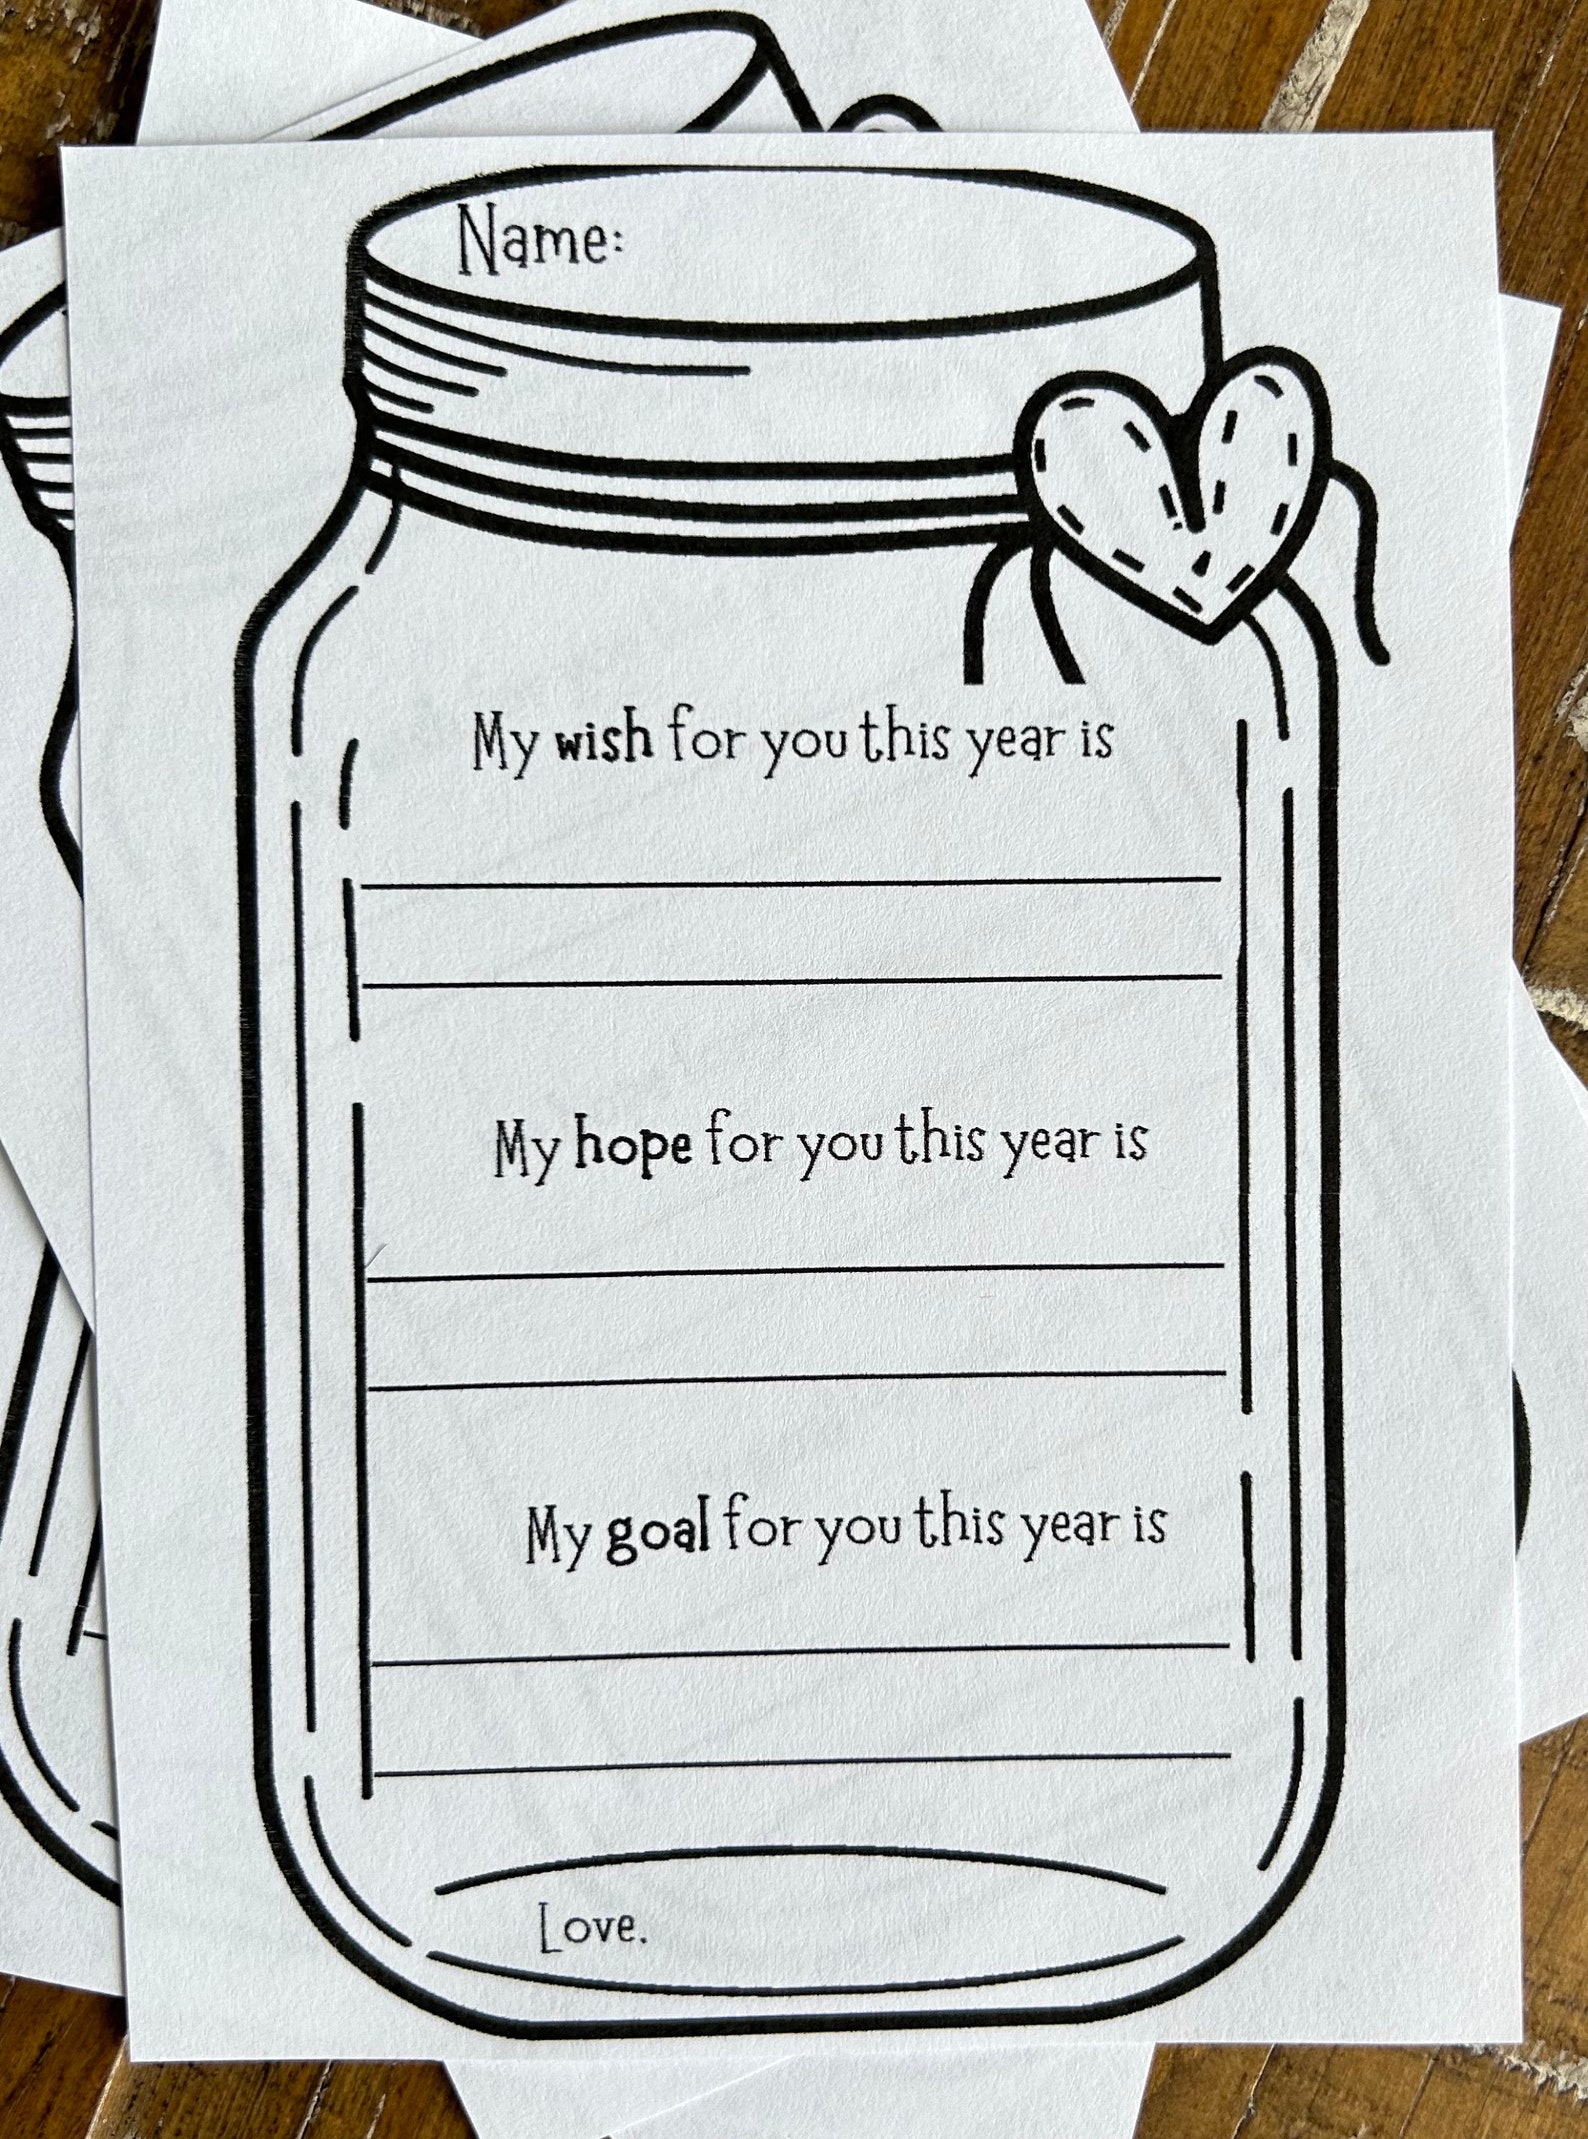 Name:
My wish for you this year is
My hope for you this year is
My goal for you this year is
Love.